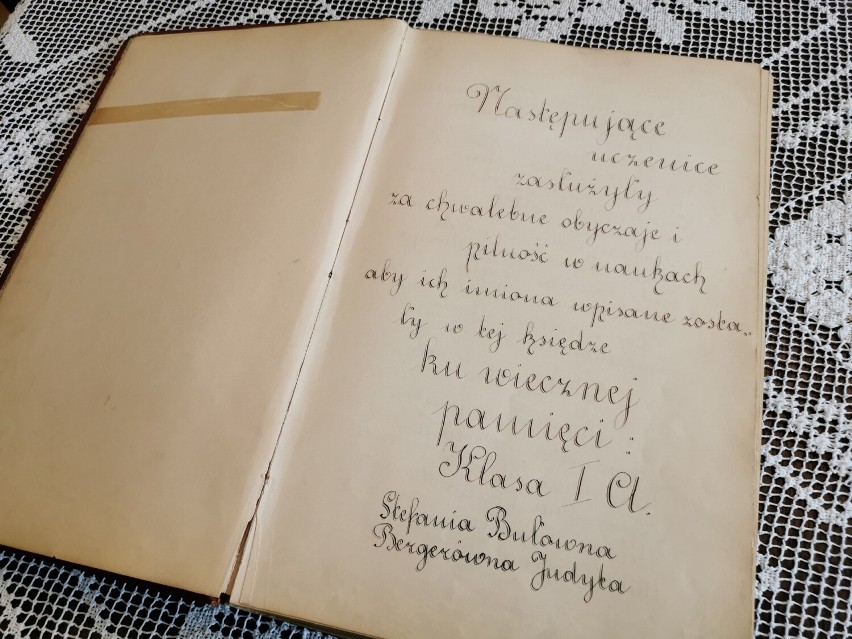 Następujące
uczenice
zasłużyły
za chwalebne obyczaje i
pilność w naukach
aby ich imiona wpisane zosta„
ły w tej księdze
ku wiecznej
pamięci :
Klasa I A.
Stefania Bułowna
Bergerówna Judyta